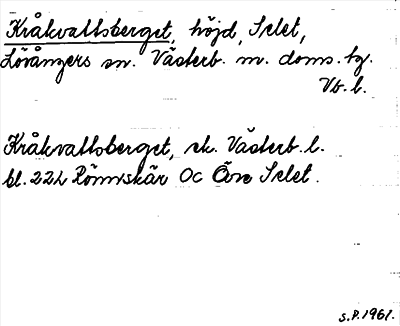 Kråkvallsberget, höjd, Selet,
Lövångers sn. Västerb. m. doms. tg.
Vb. l.
Kråkvallsberget, ek. Västerb. l.
bl. 22L Rönnskär OC Övre Selet.
S.P. 1961.